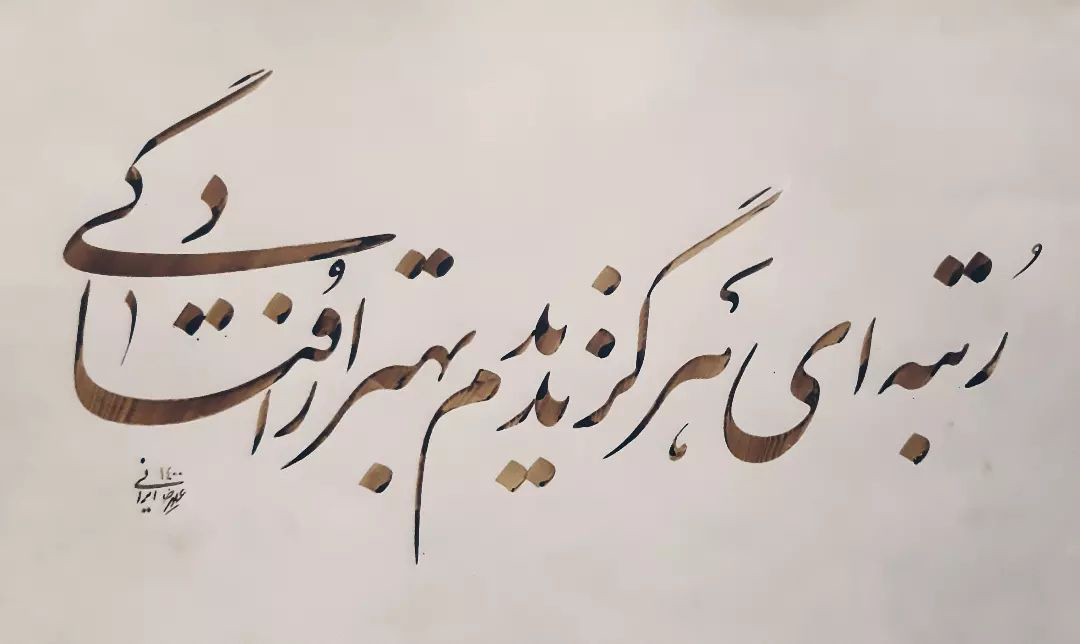 رُتبه ای هرگز ندیدم بهتر از اُفتادگی
۱۴۰۰
علیرضا ایرانی